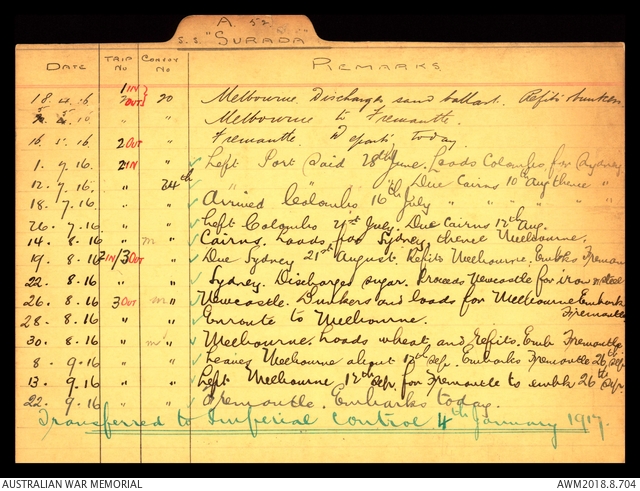 A. 52
S.S. "SURADA"
DATE TRIP No CONVOY No REMARKS
18. 4. 16 1 IN 2 OUT 20 Melbourne. Discharges sand ballast. Refits bunkers
5. 16 " " Melbourne to Fremantle.
16. 5. 16 2 OUT " Fremantle. Departs today.
1. 7. 16 2 IN " Left Port Said 28th June. Loads Colombo for Sydney
12. 7. 16 " 24th " " " Due Cairns 10th Aug thence "
18. 7. 16 " " Arrived Colombo 16th July " " " " "
26. 7. 16 " " Left Colombo 21st July. Due Cairns 12th Aug.
14. 8. 16 " m " Cairns. Loads for Sydney, thence Melbourne.
19. 8. 16 2 IN/3 OUT " Due Sydney 21st August. Refits Melbourne. Embks Fremantle
22. 8. 16 " " Sydney. Discharges sugar. Proceeds Newcastle for iron
26. 8. 16 3 OUT m " Newcastle. Bunkers and loads for Melbourne Embark Fremantle
28. 8. 16 " " Enroute to Melbourne.
30. 8. 16 " m " Melbourne. Loads wheat and refits. Emb Fremantle
8. 9. 16 " " Leaves Melbourne about 12th Sep. Embarks Fremantle 26th Sep.
13. 9. 16 " " Left Melbourne 12th Sep. for Fremantle to embk 26th Sep.
22. 9. 16 " " Fremantle. Embarks today.
Transferred to Imperial Control 4th January 1917.
AUSTRALIAN WAR MEMORIAL AWM2018.8.704